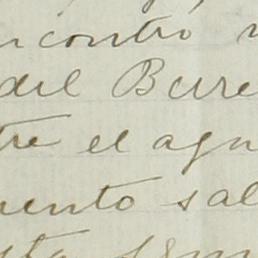 ncontró
del Burre
tre el agu
uento sal